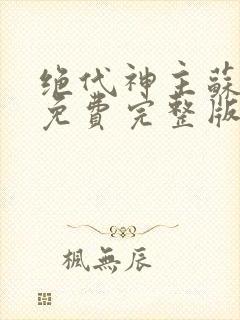 绝代神主蘇
免費完整版
楓無辰